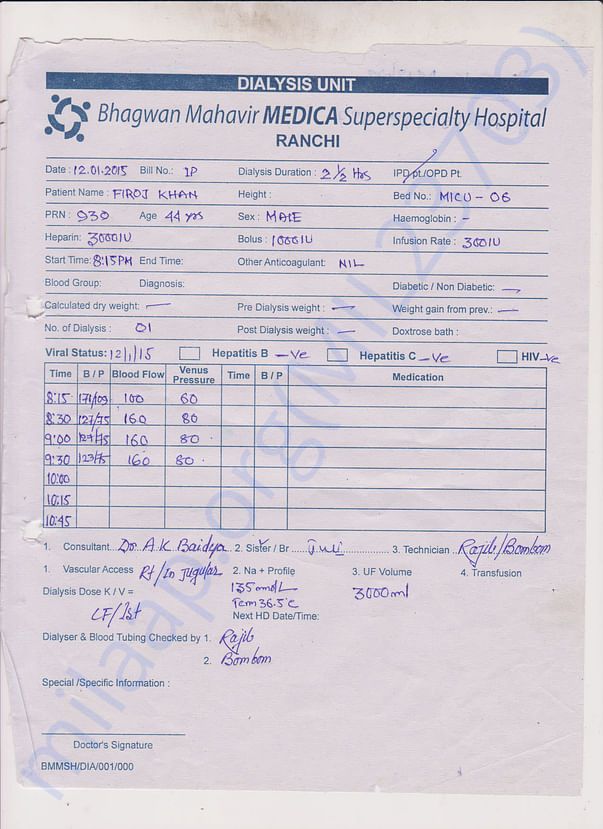 DIALYSIS UNIT
Bhagwan Mahavir MEDICA Superspecialty Hospital
RANCHI
Date : 12.01.2015 Bill No.: IP Dialysis Duration : 2 1/2 Hrs IPD pt./OPD Pt.
Patient Name : FIROJ KHAN Height : Bed No.: MICU - 06
PRN : 930 Age 44 yrs Sex : MALE Haemoglobin : -
Heparin: 3000IU Bolus : 1000IU Infusion Rate : 300IU
Start Time: 8:15PM End Time: Other Anticoagulant: NIL
Blood Group: Diagnosis: Diabetic / Non Diabetic: —
Calculated dry weight: — Pre Dialysis weight : — Weight gain from prev.: —
No. of Dialysis : 01 Post Dialysis weight : — Doxtrose bath :
Viral Status: 12/1/15 Hepatitis B -Ve Hepatitis C -Ve HIV -Ve
Time B / P Blood Flow Venus Pressure Time B / P Medication
8:15 171/09 100 60
8:30 127/75 160 80
9:00 127/75 160 80
9:30 123/75 160 80
10:00
10:15
10:45
1. Consultant Dr A K Baidya 2. Sister / Br 3. Technician Rajib/Bombom
1. Vascular Access Rt/In Jugular 2. Na + Profile 3. UF Volume 4. Transfusion
135 3000ml
Dialysis Dose K / V = 36.5°C
Next HD Date/Time:
Dialyser & Blood Tubing Checked by 1. Rajib
2. Bombom
Special /Specific Information :
Doctor's Signature
BMMSH/DIA/001/000
milaap.org(MIL22703)